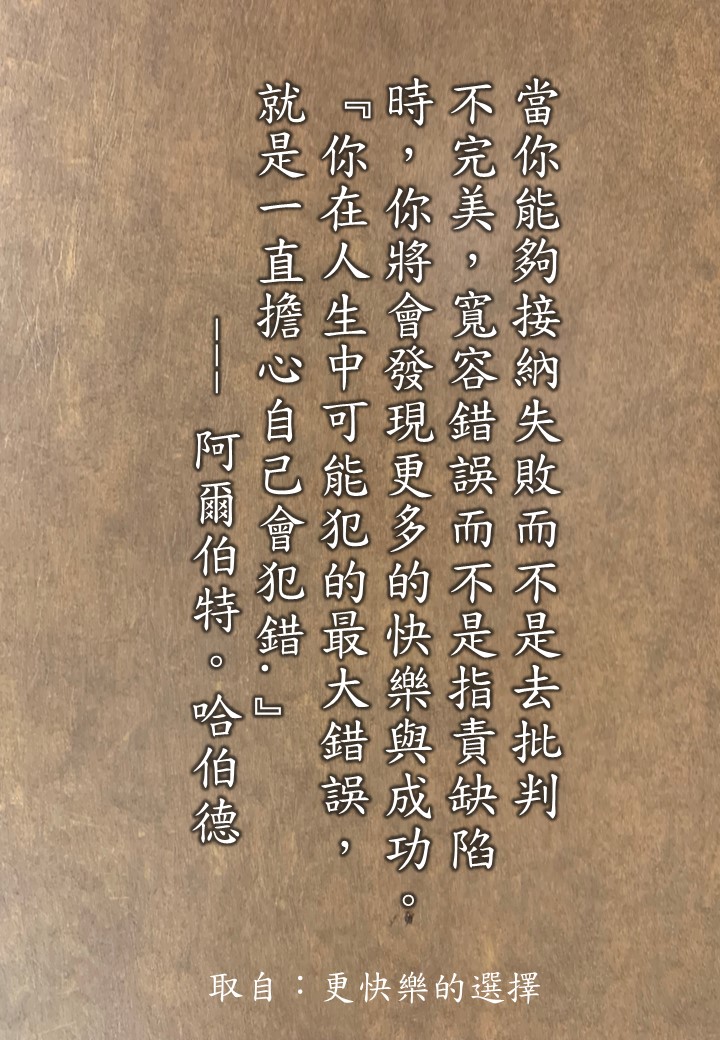 當你能夠接納失敗而不是去批判
不完美，寬容錯誤而不是指責缺陷
時，你將會發現更多的快樂與成功。
『你在人生中可能犯的最大錯誤，
就是一直擔心自己會犯錯.』
——— 阿爾伯特。哈伯德
取自：更快樂的選擇